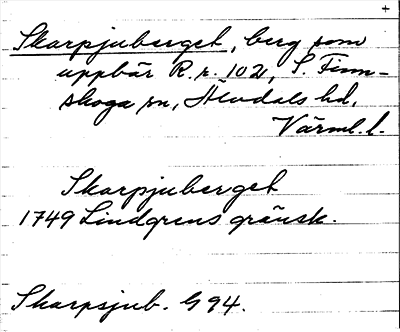 +
Skarpjuberget, berg som
uppbär R.r. 102, S. Finn-
skoga sn, Älvdals hd,
Värml. l.
Skarpjuberget
1749 Lindgrens gränsk.
Skarpsjub. G 94.